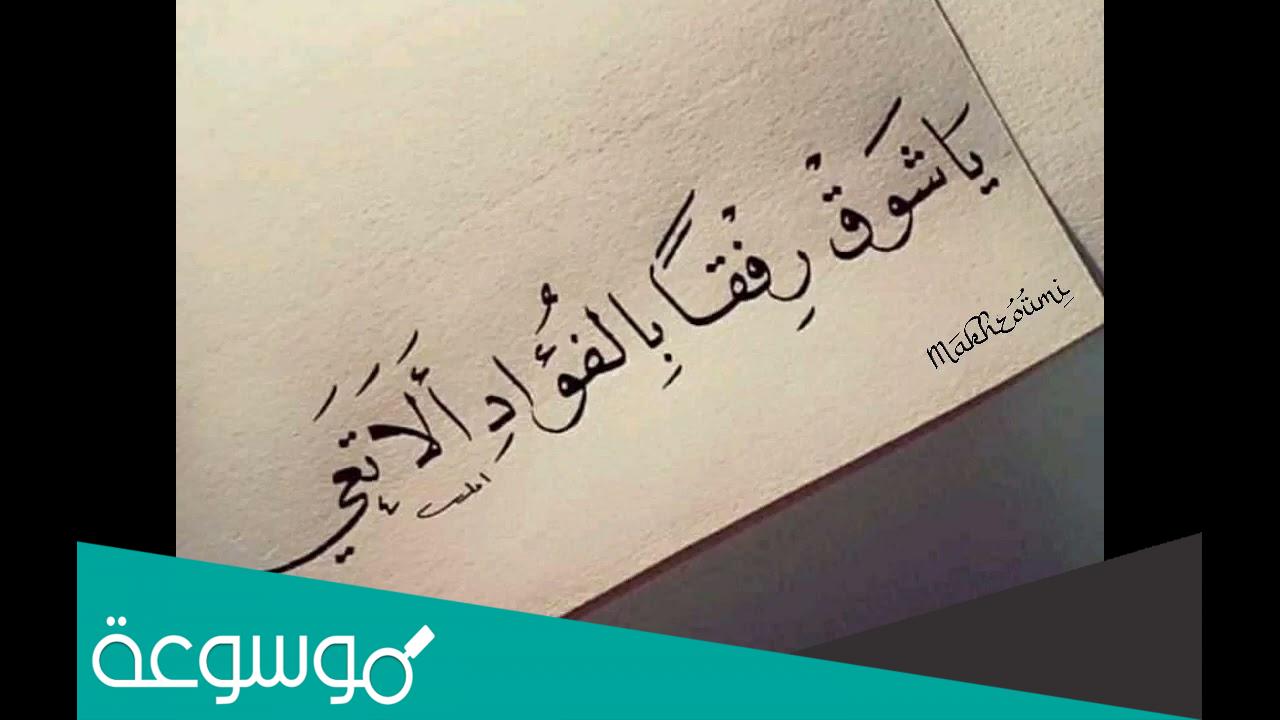 يَا شَوَقْ رِفْقاً بِالفُؤَادِ أَلَا تَعَي
Makhzoumi
موسوعة